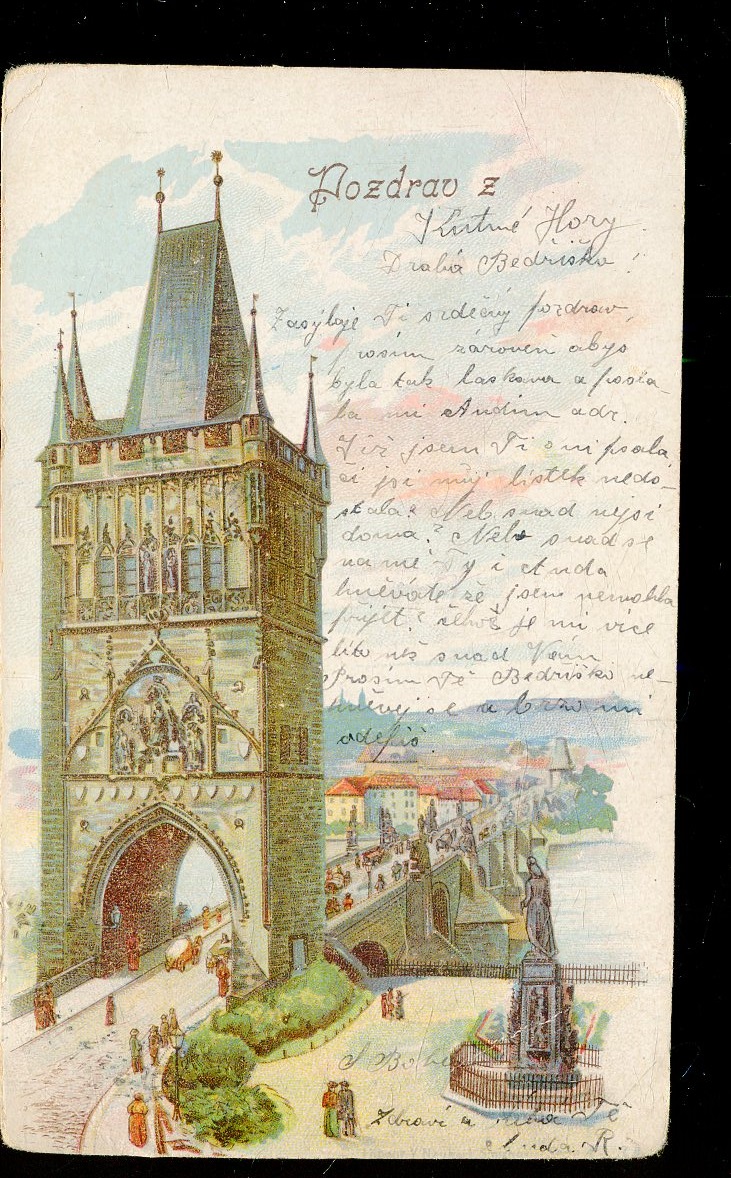 Pozdrav z
Kutné Hory
Drahá Bedřiško!
Zasýlaje Ti srdečný pozdrav,
prosím zároveň abys
byla tak laskava a posla-
la mi Andim adr.
Již jsem Ti o ni psala,
či jsi můj lístek nedo-
stala? Neb snad nejsi
doma? Nebo snad se
na mě Ty i Anda
hněváte že jsem nemohla
přijít? Však je mi více
líto než snad Vám
Prosím Tě Bedřiško ne-
hněvej se a brzo mi
odepiš.
S Bohem
Zdraví a líbá Tě
Luda R.